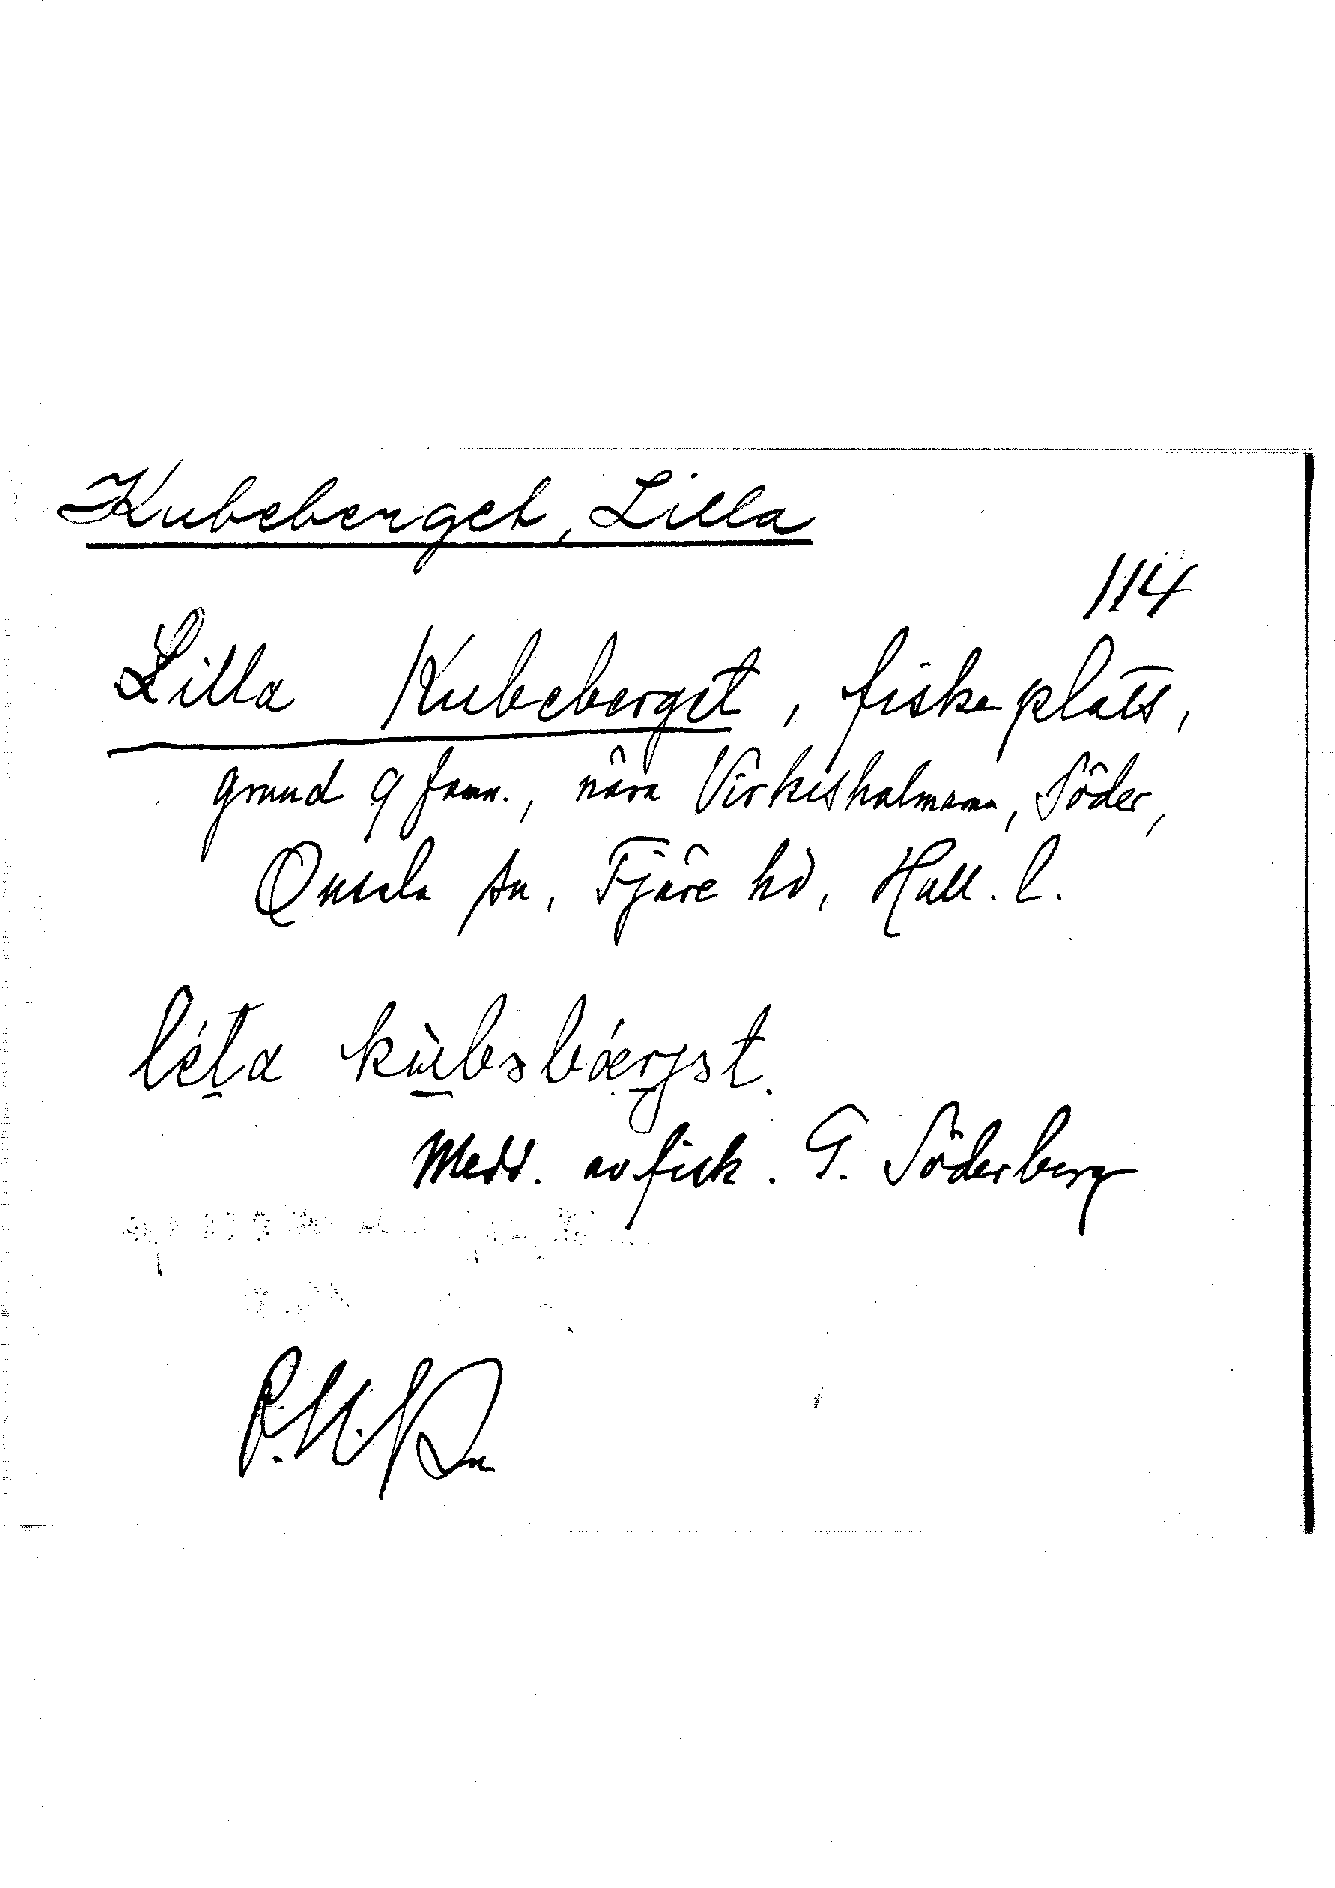 Kubeberget, Lilla
114
Lilla Kubeberget, fiskeplats,
grund 9 famn., nära Virkesholmarna, Söder,
Onsala sn, Fjäre hd, Hall. l.
léta kùbəbærjət.
Medd. av fisk. G. Söderberg